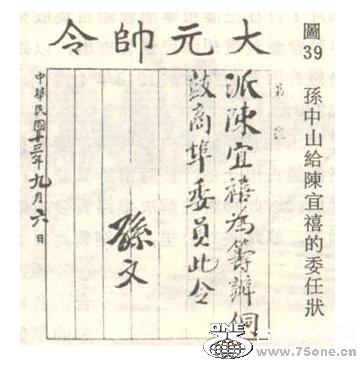 圖39 孫中山給陳宜禧的委任狀
大元帥令
派陳宜禧為籌辦銅
鼓商埠委員此令
孫文
中華民國十三年九月六日
ONE
www.75one.cn